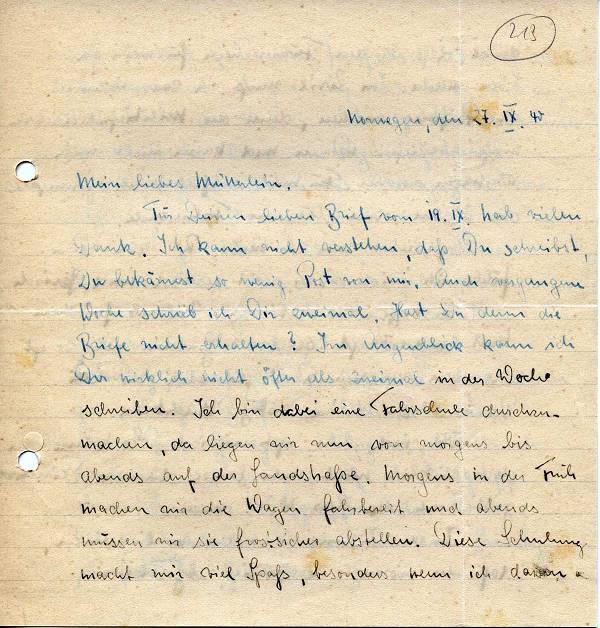 213
Norwegen, den 27. IX. 40
Mein liebes Mütterlein.
Für Deinen lieben Brief vom 19. IX. hab vielen
Dank. Ich kann nicht verstehen, daß Du schreibst,
Du bekämest so wenig Post von mir. Auch vergangene
Woche schrieb ich Dir zweimal. Hast Du denn die
Briefe nicht erhalten? Im Augenblick kann ich
Dir wirklich nicht öfter als zweimal in der Woche
schreiben. Ich bin dabei eine Fahrschule durchzu-
machen, da liegen wir nun von morgens bis
abends auf der Landstraße. Morgens in der Früh
machen wir die Wagen fahrbereit und abends
müssen wir sie frostsicher abstellen. Diese Schulung
macht mir viel Spaß, besonders wenn ich daran